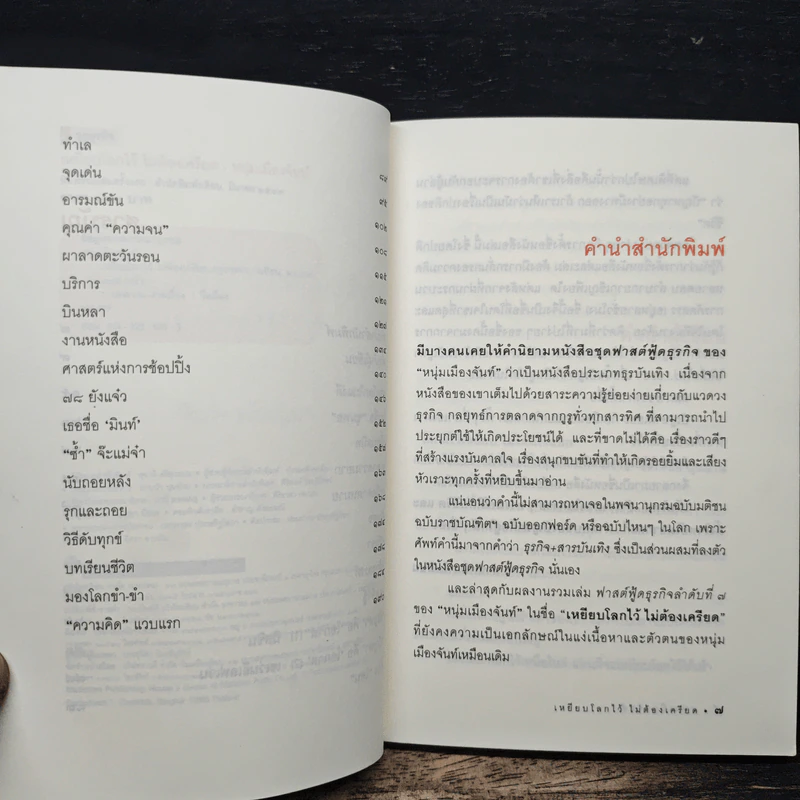 ทำเล
จุดเด่น ๘๙
อารมณ์ขัน ๙๕
คุณค่า “ความจน” ๑๐๒
ผาลาดตะวันรอน ๑๐๘
บริการ ๑๑๕
บินหลา ๑๒๑
งานหนังสือ ๑๒๘
ศาสตร์แห่งการช้อปปิ้ง ๑๓๔
๗๘ ยังแจ๋ว ๑๔๐
เธอชื่อ ‘มินท์’ ๑๔๖
“ซ้ำ” จ๊ะแม่จ๋า ๑๕๒
นับถอยหลัง ๑๕๘
รุกและถอย ๑๖๒
วิธีดับทุกข์ ๑๖๘
บทเรียนชีวิต ๑๗๒
มองโลกขำ-ขำ ๑๗๘
“ความคิด” แวบแรก ๑๘๔
๑๙๐
คำนำสำนักพิมพ์
มีบางคนเคยให้คำนิยามหนังสือชุดฟาสต์ฟู้ดธุรกิจ ของ
“หนุ่มเมืองจันท์” ว่าเป็นหนังสือประเภทธุรบันเทิง เนื่องจาก
หนังสือของเขาเต็มไปด้วยสาระความรู้ย่อยง่ายเกี่ยวกับแวดวง
ธุรกิจ กลยุทธ์การตลาดจากกูรูทั่วทุกสารทิศ ที่สามารถนำไป
ประยุกต์ใช้ให้เกิดประโยชน์ได้ และที่ขาดไม่ได้คือ เรื่องราวดีๆ
ที่สร้างแรงบันดาลใจ เรื่องสนุกขบขันที่ทำให้เกิดรอยยิ้มและเสียง
หัวเราะทุกครั้งที่หยิบขึ้นมาอ่าน
แน่นอนว่าคำนี้ไม่สามารถหาเจอในพจนานุกรมฉบับมติชน
ฉบับราชบัณฑิตฯ ฉบับออกฟอร์ด หรือฉบับไหนๆ ในโลก เพราะ
ศัพท์คำนี้มาจากคำว่า ธุรกิจ+สารบันเทิง ซึ่งเป็นส่วนผสมที่ลงตัว
ในหนังสือชุดฟาสต์ฟู้ดธุรกิจ นั่นเอง
และล่าสุดกับผลงานรวมเล่ม ฟาสต์ฟู้ดธุรกิจลำดับที่ ๗
ของ “หนุ่มเมืองจันท์” ในชื่อ “เหยียบโลกไว้ ไม่ต้องเครียด”
ที่ยังคงความเป็นเอกลักษณ์ในแง่เนื้อหาและตัวตนของหนุ่ม
เมืองจันท์เหมือนเดิม
เหยียบโลกไว้ ไม่ต้องเครียด • ๗